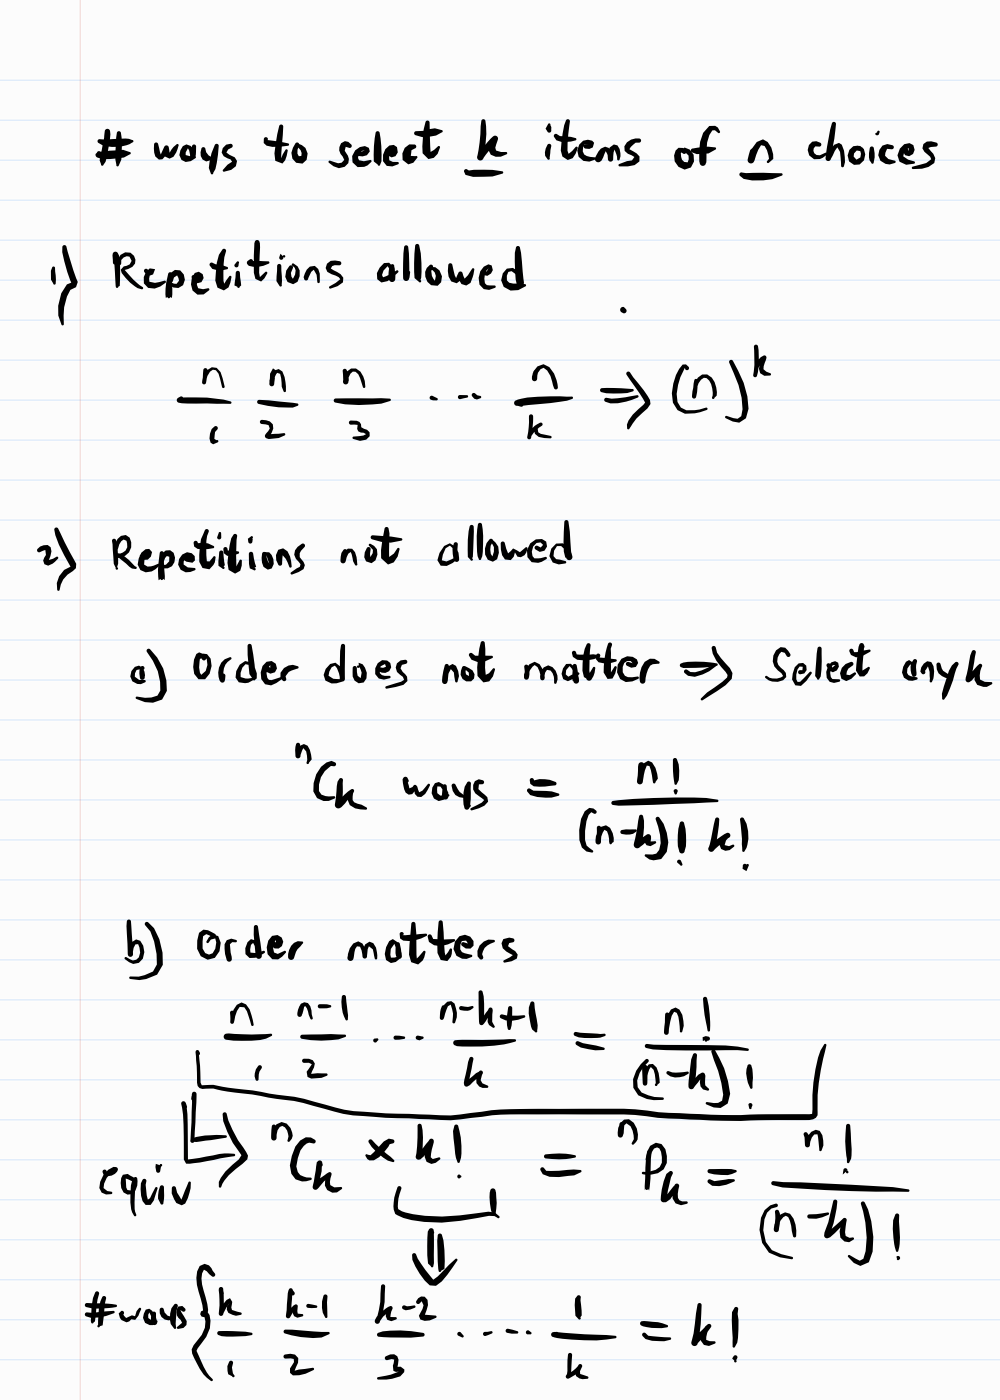 # ways to select k items of n choices
1) Repetitions allowed
n/1 n/2 n/3 ... n/k ⇒ (n)^k
2) Repetitions not allowed
a) Order does not matter ⇒ Select any k
ⁿCₖ ways = n! / (n-k)! k!
b) Order matters
n/1 n-1/2 ... n-k+1/k = n! / (n-k)!
equiv ⇒ ⁿCₖ × k! = ⁿPₖ = n! / (n-k)!
⇓
# ways { k/1 k-1/2 k-2/3 ..... 1/k = k!